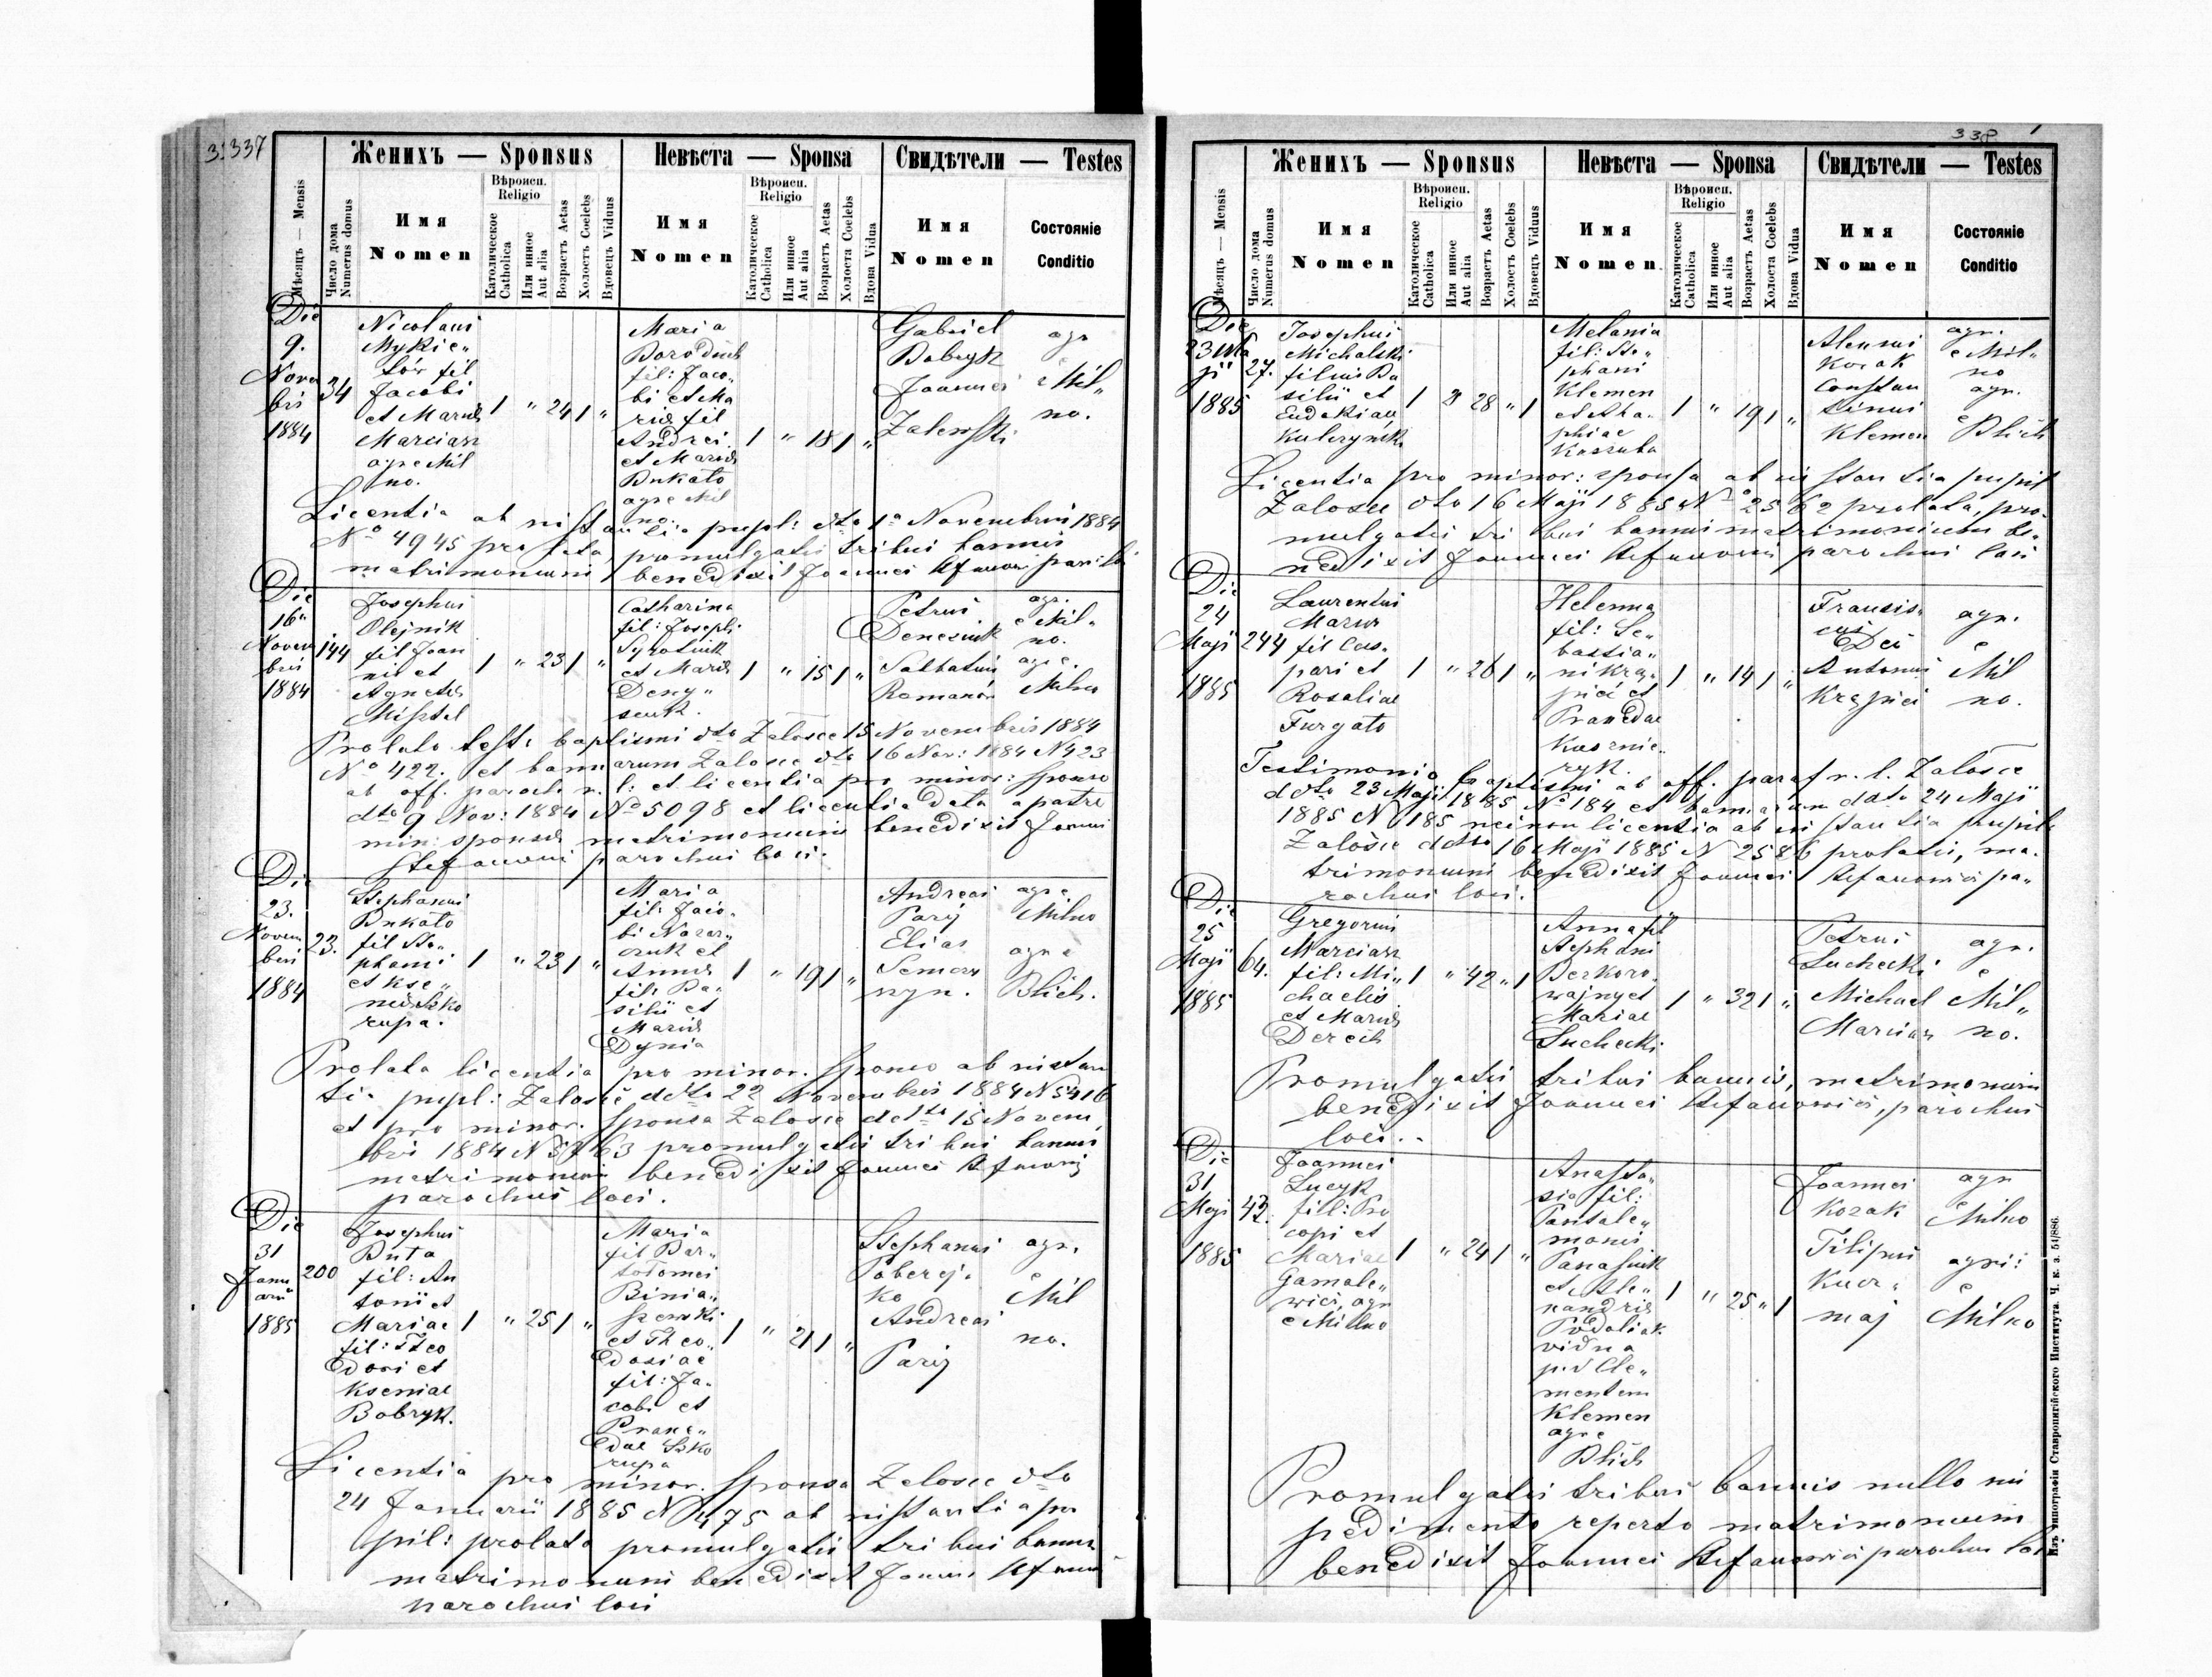 3. 337
Женихъ — Sponsus
Невѣста — Sponsa
Свидѣтели — Testes
Мѣсяцъ — Mensis
Число дома
Numerus domus
Имя
Nomen
Вѣроисп.
Religio
Католическое
Catholica
Или инное
Aut alia
Возрастъ Aetas
Холостъ Coelebs
Вдовецъ Viduus
Имя
Nomen
Вѣроисп.
Religio
Католическое
Catholica
Или инное
Aut alia
Возрастъ Aetas
Холоста Coelebs
Вдова Vidua
Имя
Nomen
Состояніе
Conditio
Die
9.
Novem
bris
1884
34
Nicolaus
Mykie„
tów fil
Jacobi
et Mariae
Marciasz
agr e Mil
no.
1 „ 24 1 „
Maria
fil: Jaco„
bi et Ma
riae fil
Andrei
et Mariae
Bukato
agr e Mil
no.
1 „ 18 1 „
Gabriel
Bobryk
Joannes
Zalewski
agr
e Mil„
no.
Licentia ab instantia pupil: dto 1a Novembris 1884
No 4945 prolata, promulgatis tribus bannis
matrimonium benedixit Joannes Stefanowicz
Die
16„
Novem
bris
1884
144
Josephus
Olejnik
fil Joan
nis et
Agnetis
Misztal
1 „ 23 1 „
Catharina
fil: Josephi
Syrotiuk
et Mariae
Deny„
seuk.
1 „ 15 1 „
Petrus
Denesiuk
Romanów
agr.
e Mil„
no.
agr e
Milno
Prolato testi baptismi dto Zalosce 15 Novembris 1884
No 422. et bannorum Zalosce dto 16 Nov: 1884 N 423
ab off. paroch r. l: et licentia pro minor: sponso
dto 9 Nov: 1884 No 5098 et licentia data a patre
min: sponsae matrimonium benedixit Joannes
Stefanowicz parochus loci.
Die
23.
Novem
bris
1884
23.
Stephanus
Bukato
fil Ste„
phani
et Kse„
niae Sko
rupa.
1 „ 23 1 „
Maria
fil: Jaco„
bi Nazar„
czuk et
Annae
fil: Ba„
silii et
Mariae
Dynia
1 „ 19 1 „
Andreas
Paryj
Elias
Semczy
szyn.
agr e
Milno
agr e
Blich.
Prolata licentia pro minor. sponso ab instan
tia pupl: Zalosce ddto 22 Novembris 1884 N 5416
et pro minor. sponsa Zalosce ddto 15 Novem
bris 1884 N 5763 promulgatis tribus bannis
matrimonium benedixit Joannes Stefanowicz
parochus loci.
Die
31
Janu
arii
1885
200
Josephus
Buta
fil: An
tonii et
Mariae
fil: Theo
dori et
Kseniae
Bobryk.
1 „ 25 1 „
Maria
fil Bar„
tolomei
Binia„
szewski
et Theo„
dosiae
fil: Ja„
cobi et
Praxe„
dae Sko
rupa
1 „ 21 1 „
Stephanus
Poberej„
ko
Andreas
Paryj
agr.
e Mil
no.
Licentia pro minor. sponsa Zalosce dto
24 Januarii 1885 N 475 ab instantia pu
pil: prolata promulgatis tribus bannis
matrimonium benedixit Joannes Stefanowicz
parochus loci
338
Женихъ — Sponsus
Невѣста — Sponsa
Свидѣтели — Testes
Мѣсяцъ — Mensis
Число дома
Numerus domus
Имя
Nomen
Вѣроисп.
Religio
Католическое
Catholica
Или инное
Aut alia
Возрастъ Aetas
Холостъ Coelebs
Вдовецъ Viduus
Имя
Nomen
Вѣроисп.
Religio
Католическое
Catholica
Или инное
Aut alia
Возрастъ Aetas
Холоста Coelebs
Вдова Vidua
Имя
Nomen
Состояніе
Conditio
Die
23 Ma
ji
1885
27.
Josephus
Michalski
filius Ba
silii et
Eudokiae
Kulczynski
1 „ 28 „ 1
Melania
fil: Ste„
phani
Klemen
et
phiae
Kaszuba
1 „ 19 1 „
Alexius
Kozak
Constan
tinus
Klemen
agr.
e Mil„
no
agr.
e Blich
Licentia pro minor: sponsa ab instantia pupil
Zalosce dto 16 Maji 1885 No 2562 prolata, pro„
mulgatis tribus bannis matrimonium be„
nedixit Joannes Stefanowicz parochus loci
Die
24
Maji
1885
244
Laurentius
Mazur
fil Cas„
pari et
Rosaliae
Furgato
1 „ 26 1 „
Helenna
fil: Se„
bastia„
ni Kraj„
et
Praxedae
Kusznie„
ryk.
1 „ 14 1 „
Francis„
cus
Dei
Antonius
agr.
e
Mil
no.
Testimonio baptismi ab off. paraf r. l. Zalosce
ddto 23 Maji 1885 No 184 et bannorum ddto 24 Maji
1885 N 185 necnon licentia ab instantia pupil
Zalosce ddto 16 Maji 1885 N 2586 prolatis, ma„
trimonium benedixit Joannes Stefanowicz pa„
rochus loci.
Die
25
Maji
1885
64.
Gregorius
Marciasz
fil: Mi„
chaelis
et Mariae
Derech
1 „ 42 „ 1
Anna fil
Stephani
Bezkoro„
wajny et
Mariae
Suchecki
1 „ 32 1 „
Petrus
Suchecki
Michael
Marciasz
agr.
e
Mil„
no.
Promulgatis tribus bannis, matrimonium
benedixit Joannes Stefanowicz, parochus
loci.
Die
31
Maji
1885
42.
Joannes
Lucyk
fil: Pro
copi et
Mariae
Gamale„
wicz, agr
e Milno
1 „ 24 1 „
Anasta„
sia fil:
Pantale„
monis
Panasiuk
et Ale„
xandrae
Podoliak
vidua
p. d Cle„
mentem
Klemen
agr e
Blich
1 „ 25 „ 1
Joannes
Kozak
Filipus
Kucz„
maj
agr
e Milno
agri:
e
Milno
Promulgatis tribus bannis nullo im
pedimento reperto matrimonium
benedixit Joannes Stefanowicz parochus loci
Изъ типографіи Ставропигійского Института. Ч. к. з. 54/886.